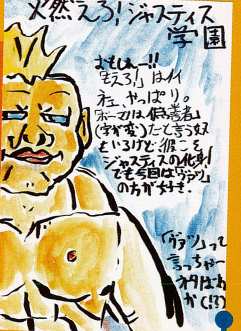 火燃えろ!ジャスティス
学園
おもしれー!!
「もえろ!」はイイ
ネェ、やっぱり。
(字が変)だと言う奴
もいるけど、彼こそ
ジャスティスの化身!
でも今回は「ヴァツ」
の方が好き.
「ヴァツ」って
言っちゃー
ネタばれ
か(!?)